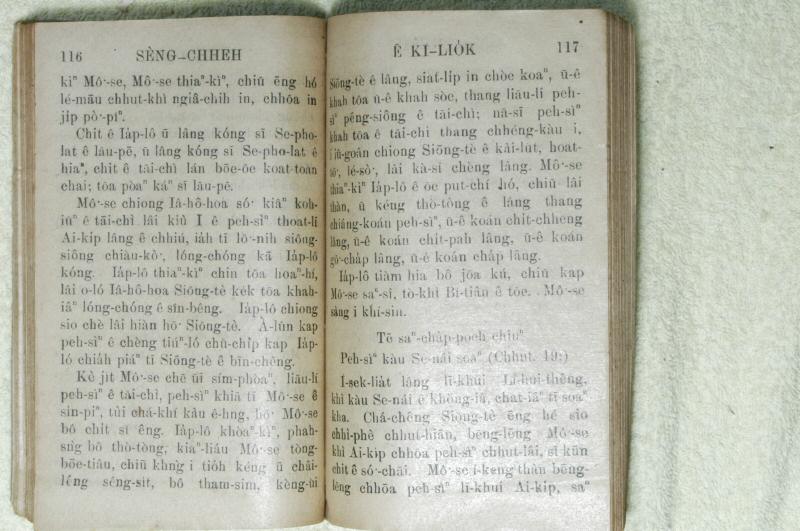 116 SÈNG-CHHEH
kìⁿ Mô͘-se, Mô͘-se thiaⁿ-kìⁿ, chiū ēng hó
lé-māu chhut-khì ngiâ-chih in, chhōa in
ji̍p pò͘-pîⁿ.
Chit ê Ia̍p-lô ū lâng kóng sī Se-pho-
lat ê lāu-pē, ū lâng kóng sī Se-pho-lat ê
hiaⁿ, chit ê tāi-chì lán bōe-ōe koat-toàn
chai; tōa pòaⁿ káⁿ sī lāu-pē.
Mô͘-se chiong Iâ-hô-hoa só͘ kiâⁿ koh-
iūⁿ ê tāi-chì lâi kiù I ê peh-sìⁿ thoat-lī
Ai-ki̍p lâng ê chhiú, ia̍h tī lō͘-nih siông-
siông chiàu-kò͘, lóng-chóng kā Ia̍p-lô
kóng. Ia̍p-lô thiaⁿ-kìⁿ chin tōa hoaⁿ-hí,
lâi o-ló Iâ-hô-hoa Siōng-tè kek tōa khah-
iâⁿ lóng-chóng ê sîn-bêng. Ia̍p-lô chiong
sio chè lâi hiàn hō͘ Siōng-tè. À-lûn kap
peh-sìⁿ ê chèng tiúⁿ-ló chū-chi̍p kap Ia̍p-
ló chia̍h piáⁿ tī Siōng-tè ê bīn-chêng.
Kè ji̍t Mô͘-se chē ūi sím-phòaⁿ, liāu-lí
peh-sìⁿ ê tāi-chì, peh-sìⁿ khiā tī Mô͘-se ê
sin-piⁿ, tùi chá-khí kàu ê-hng, hō͘ Mô͘-se
bô chi̍t sî êng. Ia̍p-lô khòaⁿ-kìⁿ, phah-
sǹg bô thò-tòng, kiaⁿ-liáu Mô͘-se tòng-
bōe-tiâu, chiū khǹg i tio̍h kéng ū châi-
lêng sêng-si̍t, bô tham-sim, kèng-ùi
Ê KÌ-LIO̍K 117
Siōng-tè ê lâng, siat-li̍p in chòe koaⁿ, ū-ê
khah tōa ū-ê khah sòe, thang liāu-lí peh-
sìⁿ pêng-siông ê tāi-chì; nā-sī peh-sìⁿ
khah tōa ê tāi-chì thang chhéng-kàu i,
i iû-goân chiong Siōng-tè ê kài-lu̍t, hoat-
tō͘, lé-sò͘, lâi kà-sī chèng lâng. Mô͘-se
thiaⁿ-kìⁿ Ia̍p-lô ê oe put-chí hó, chiū lâi
thàn, ū kéng thò-tòng ê lâng thang
chiáng-koán peh-sìⁿ, ū-ê koán chi̍t-chheng
lâng, ū-ê koán chi̍t-pah lâng, ū-ê koán
gō͘-cha̍p lâng, ū-ê koán cha̍p lâng.
Ia̍p-lô tiàm hia bô jōa kú, chiū kap
Mô͘-se saⁿ-sî, tò-khì Bí-tiân ê tōe. Mô͘-se
sàng i khí-sin.
Tē saⁿ-cha̍p-poeh chiuⁿ
Peh-sìⁿ kàu Se-nái soaⁿ (Chhut. 19:)
Í-sek-lia̍t lâng lī-khui Lī-hui-thèng,
khì kàu Se-nái ê khòng-iá, chat-iâⁿ tī soaⁿ
kha. Chá-chêng Siōng-tè ēng hé sio
chhì-phè chhut-hiān, bēng-lēng Mô͘-se
khì Ai-ki̍p chhōa peh-sìⁿ chhut-lâi, sī kūn
chit ê só͘-chāi. Mô͘-se í-keng thàn bēng-
lēng chhōa peh-sìⁿ lī-khui Ai-ki̍p, saⁿ